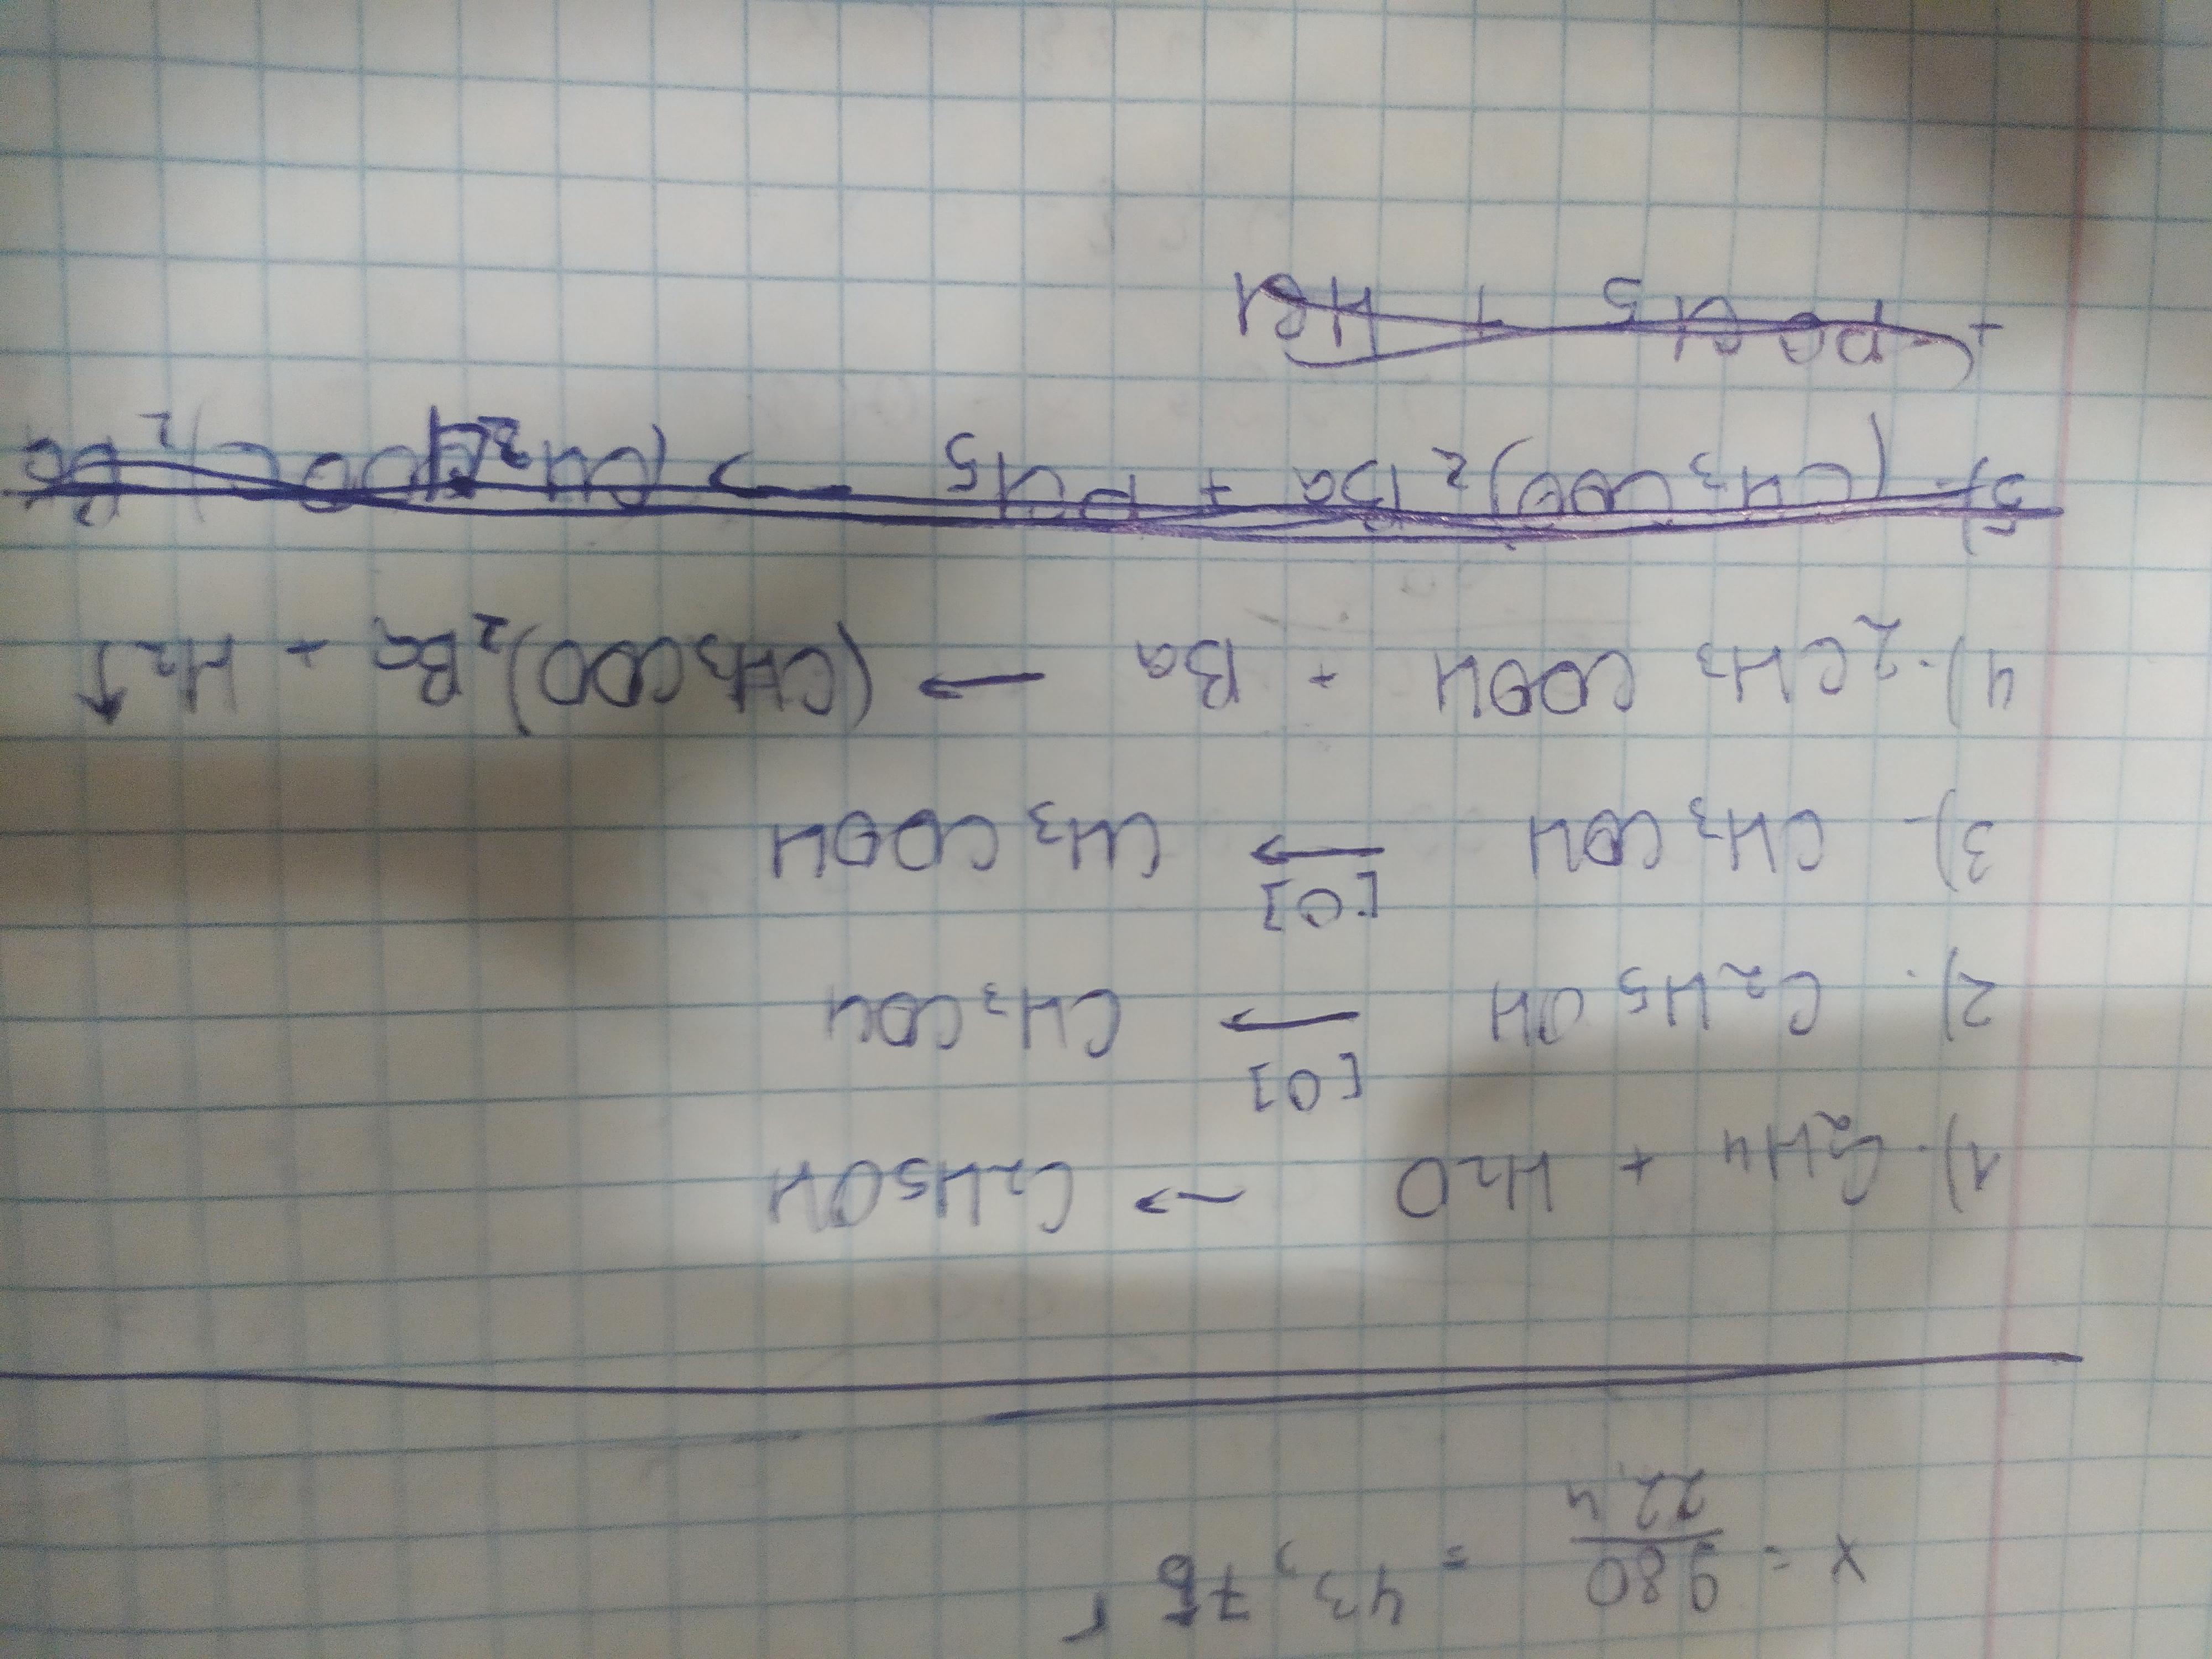 x = 980/22,4 = 43,75 г
1). C2H4 + H2O → C2H5OH
2). C2H5OH [O]→ CH3COH
3). CH3COH [O]→ CH3COOH
4). 2CH3COOH + Ba → (CH3COO)2Ba + H2↑
5). (CH3COO)2Ba + PCl5 → (CH2ClCOO)2Ba
+ HCl